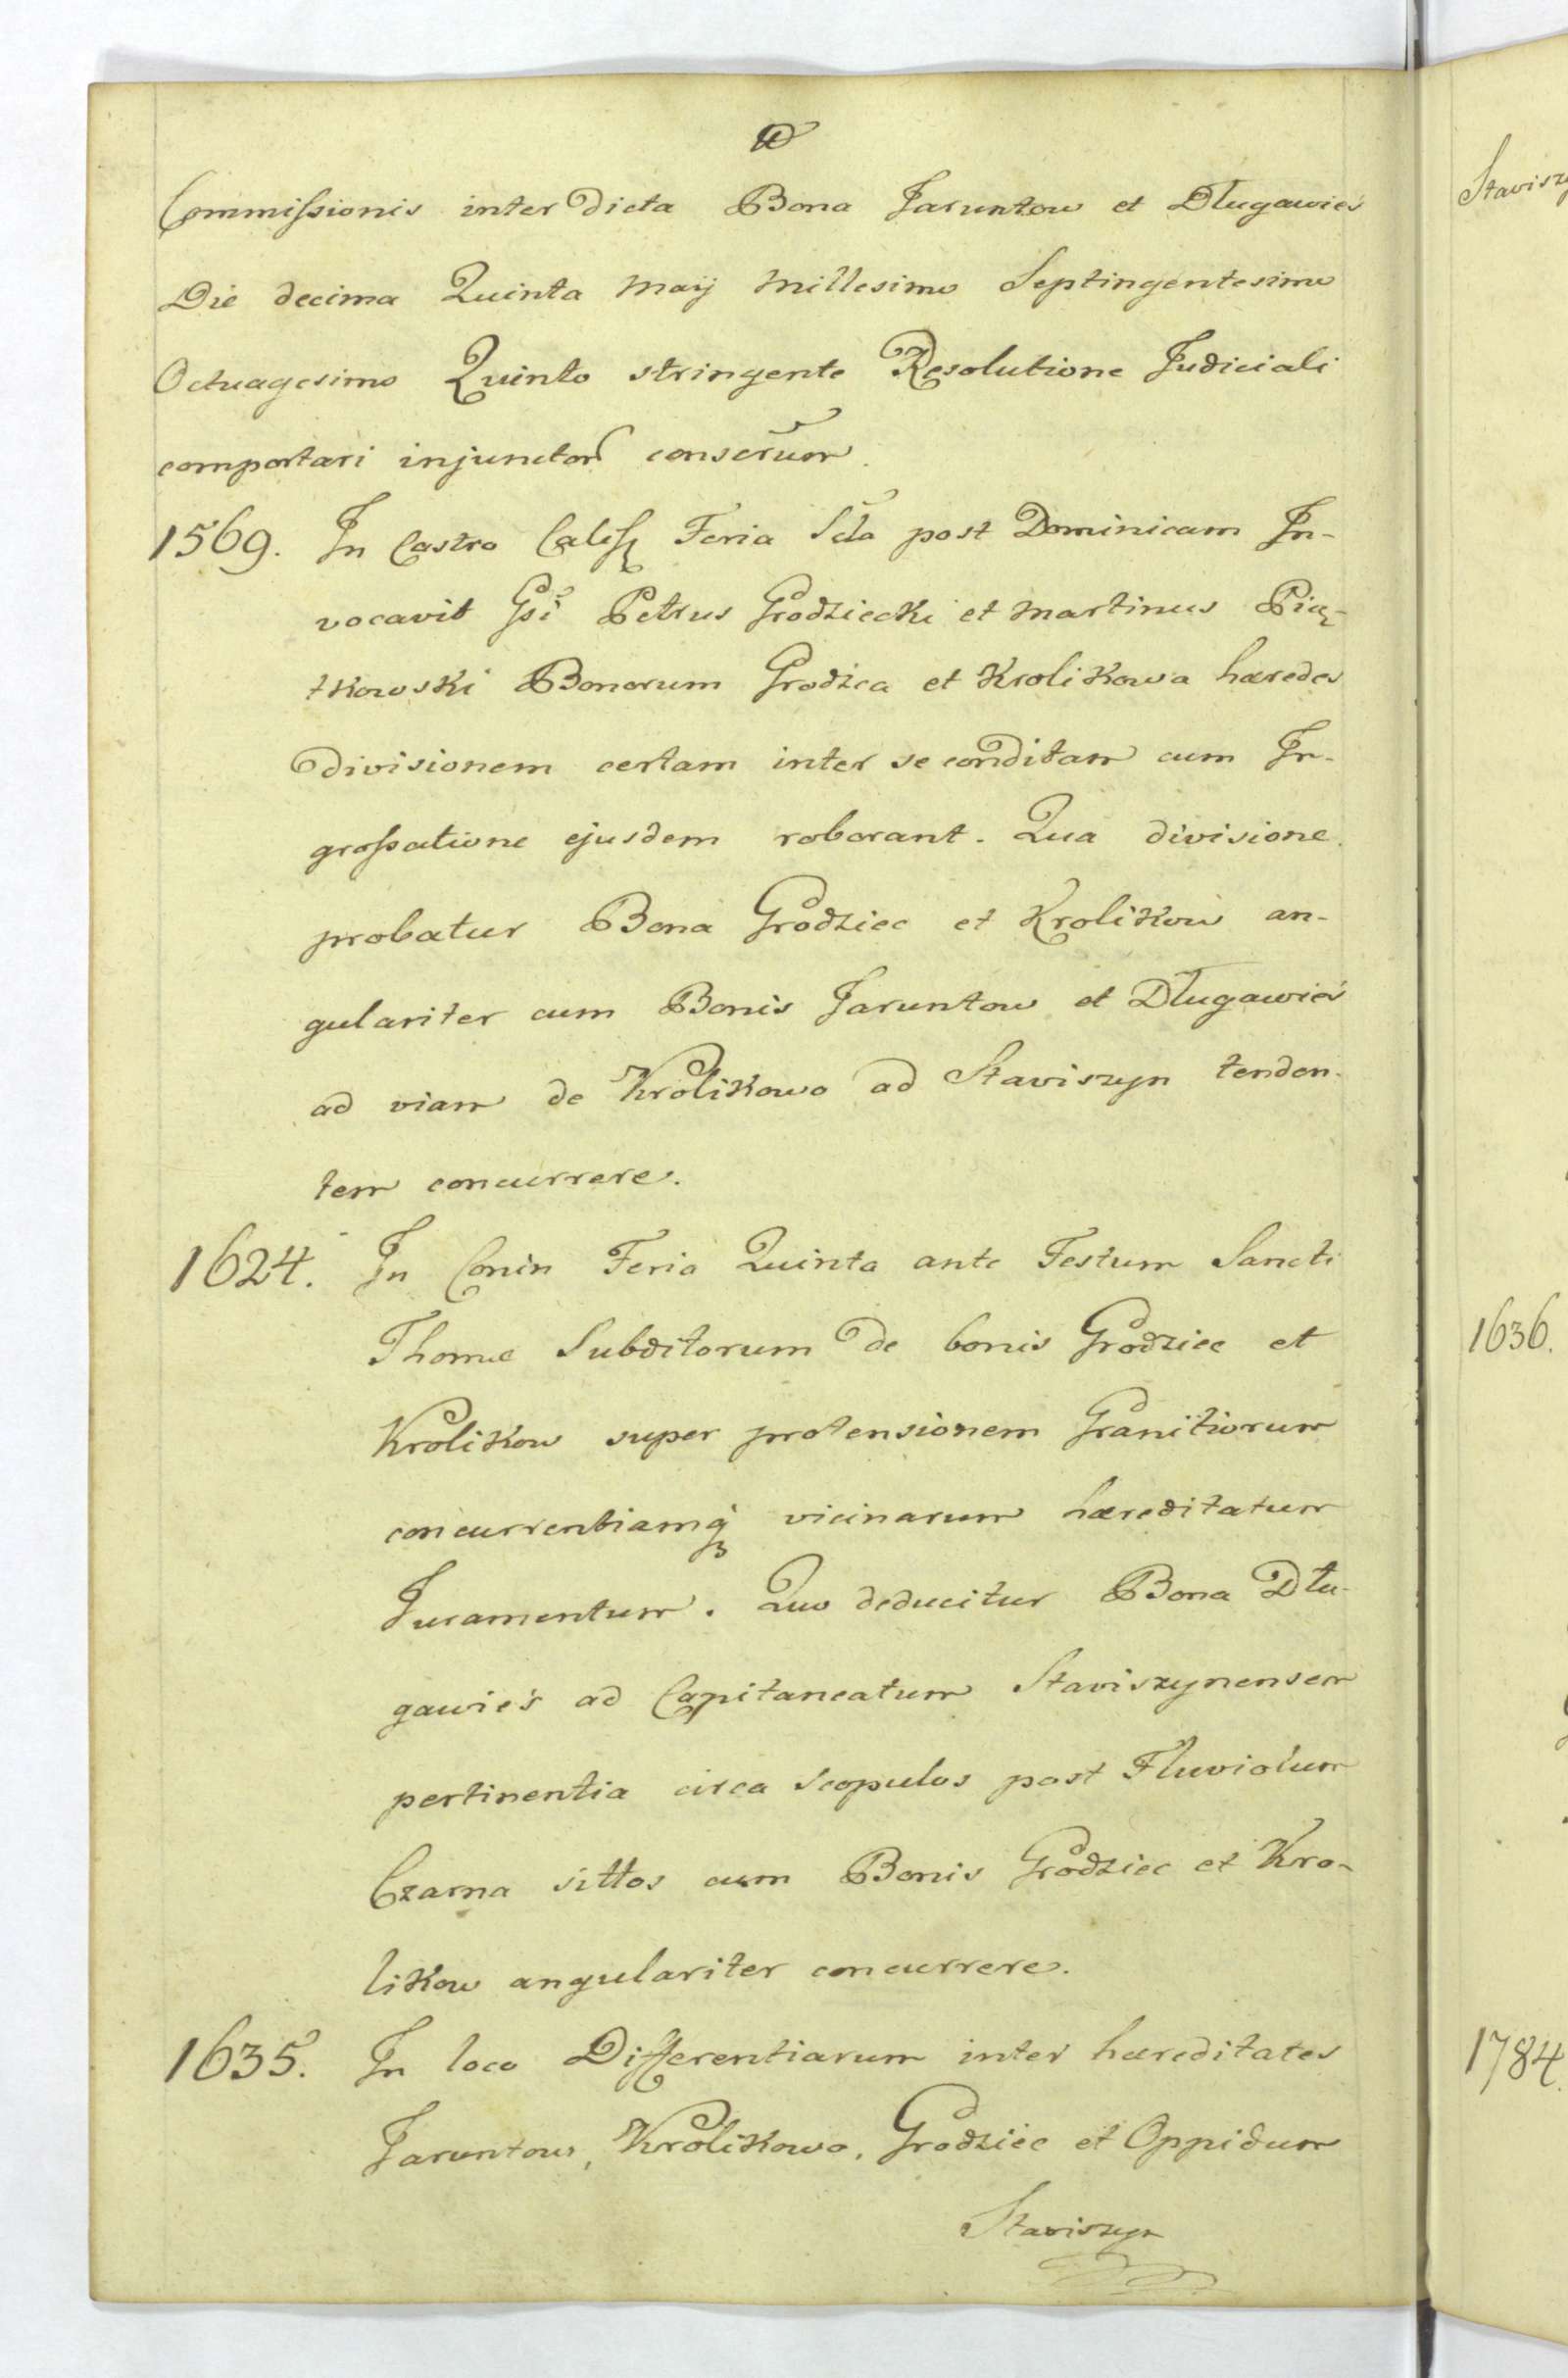 Commissionis inter dicta Bona Jaruntow et Długawieś
Die decima Quinta Maÿ Millesimo Septingentesimo
Octuagesimo Quinto stringente Resolutione Judiciali
comportari injunctor conserum
1569. In Castro Calis Feria Scda post Dominicam In-
vocavit Gsi Petrus Grodziecki et Martinus Pią-
tkowski Bonorum Grodzca et Krolikowa hæredes
divisionem certam inter se conditam cum In-
grossatione ejusdem roborant. Qua divisione
probatur Bona Grodziec et Krolikow an-
gulariter cum Bonis Jaruntow et Długawieś
ad viam de Krolikowo ad Staviszyn tenden-
tem concurrere.
1624. In Conin Feria Quinta ante Festum Sancti
Thomæ Subditorum de bonis Grodziec et
Krolikow super protensionem Granitiorum
concurrentiamq vicinarum hæreditatum
Juramentum. Quo deducitur Bona Dłu-
gawieś ad Capitaneatum Staviszynensem
pertinentia circa Scopulos post Fluviolum
Czarna sittos cum Bonis Grodziec et Kro-
likow angulariter concurrere.
1635. In loco Differentiarum inter hæreditates
Jaruntow, Krolikowo, Grodziec et Oppidum
Staviszyn
Stavisz
1636.
1784